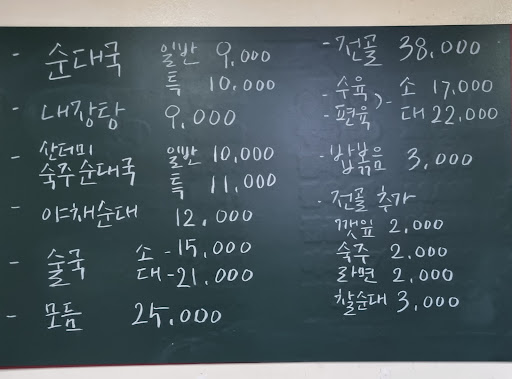 - 순대국 일반 9,000
특 10,000
- 내장탕 9,000
- 산더미
숙주순대국 일반 10,000
특 11,000
- 야채순대 12,000
- 술국 소 - 15,000
대 - 21,000
- 모듬 25,000
- 전골 38,000
- 수육 ) - 소 17,000
- 편육 대 22,000
- 밥볶음 3,000
- 전골 추가
깻잎 2,000
숙주 2,000
라면 2,000
찰순대 3,000